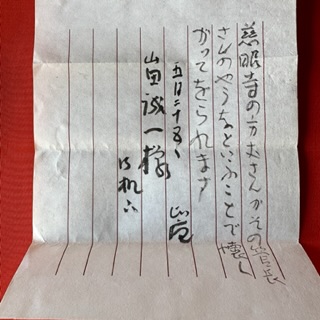 慈眼寺の方丈さんがその管長
さんのやうなといふことで懐し
がってをられます
五月二十五日
山田誠一様